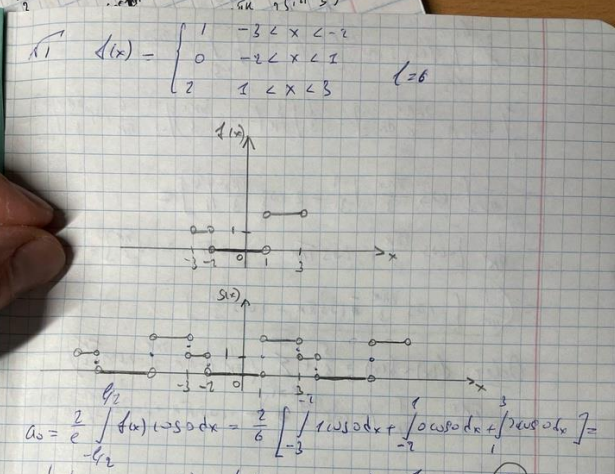 √1 f(x) = { 1 -3 < x < -2
0 -2 < x < 1
2 1 < x < 3
l=6
f(x)
1
-3 -2 0 1 3 x
S(x)
1
-3 -2 0 1 3 x
-2
a₀ = 2/e ∫_{-l/2}^{l/2} f(x) cos0dx = 2/6 [ ∫_{-3}^{-2} 1cos0dx + ∫_{-2}^{1} 0cos0dx + ∫_{1}^{3} 2cos0dx ] =